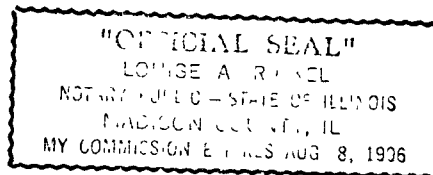 "OFFICIAL SEAL"
LOUISE A.
NOTARY PUBLIC – STATE OF ILLINOIS
MADISON COUNTY, IL
MY COMMISSION EXPIRES AUG 8, 1996